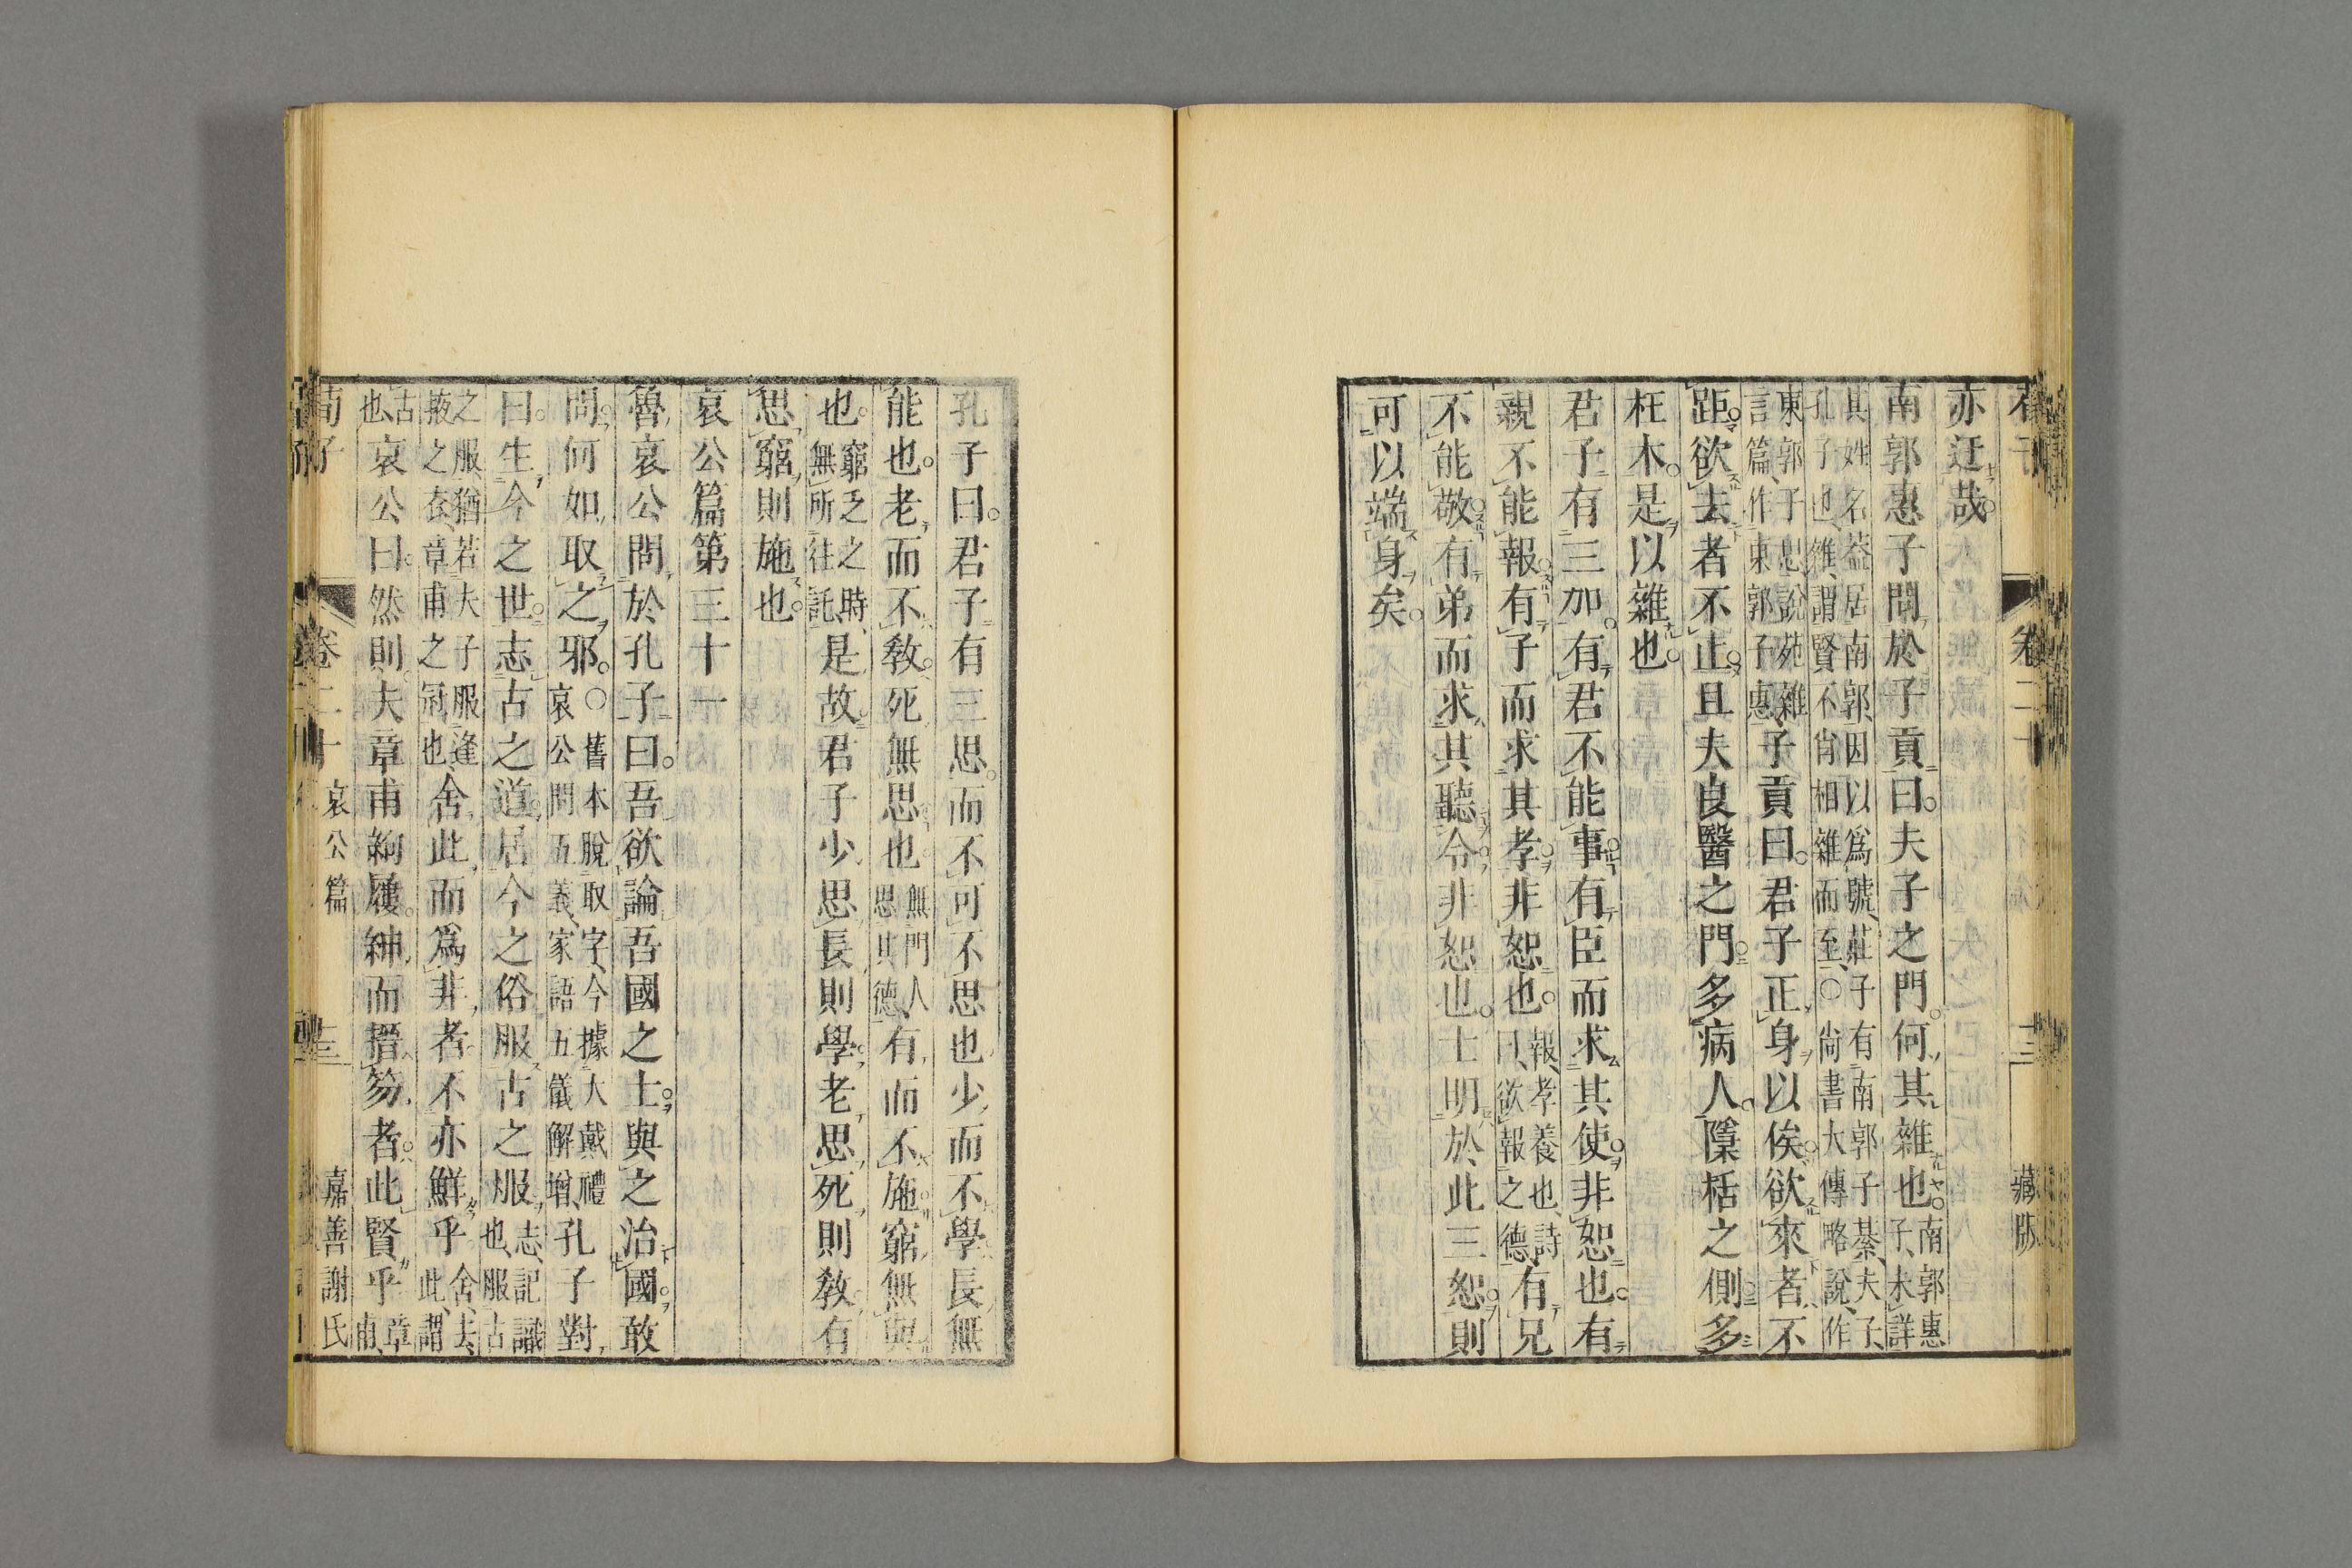 亦迂哉
南郭惠子問於子貢曰夫子之門何其雜也南郭惠子未詳
其姓名蓋居南郭因以爲號莊子有南郭子綦夫子
孔子也雜謂賢不肖相雜而至○尙書大傳略說作
東郭子思說苑雜言篇作東郭子惠子貢曰君子正身以俟欲來者不
距欲去者不止且夫良醫之門多病人檃栝之側多
枉木是以雜也
君子有三恕有君不能事有臣而求其使非恕也有
親不能報有子而求其孝非恕也報孝養也詩曰欲報之德有兄
不能敬有弟而求其聽令非恕也士明於此三恕則
可以端身矣
卷二十
十二
藏版
孔子曰君子有三思而不可不思也少而不學長無
能也老而不敎死無思也無門人思其德有而不施窮無與
也窮乏之時無所往託是故君子少思長則學老思死則敎有
思窮則施也
哀公篇第三十一
魯哀公問於孔子曰吾欲論吾國之士與之治國敢
問何如取之邪○舊本脫取字今據大戴禮哀公問五義家語五儀解增孔子對
曰生今之世志古之道居今之俗服古之服志記識也服古
之服猶若夫子服逢掖之衣章甫之冠也舍此而爲非者不亦鮮乎舍去此謂
古也哀公曰然則夫章甫絇屨紳而搢笏者此賢乎章甫
荀子
卷二十
哀公篇
十三
嘉善謝氏